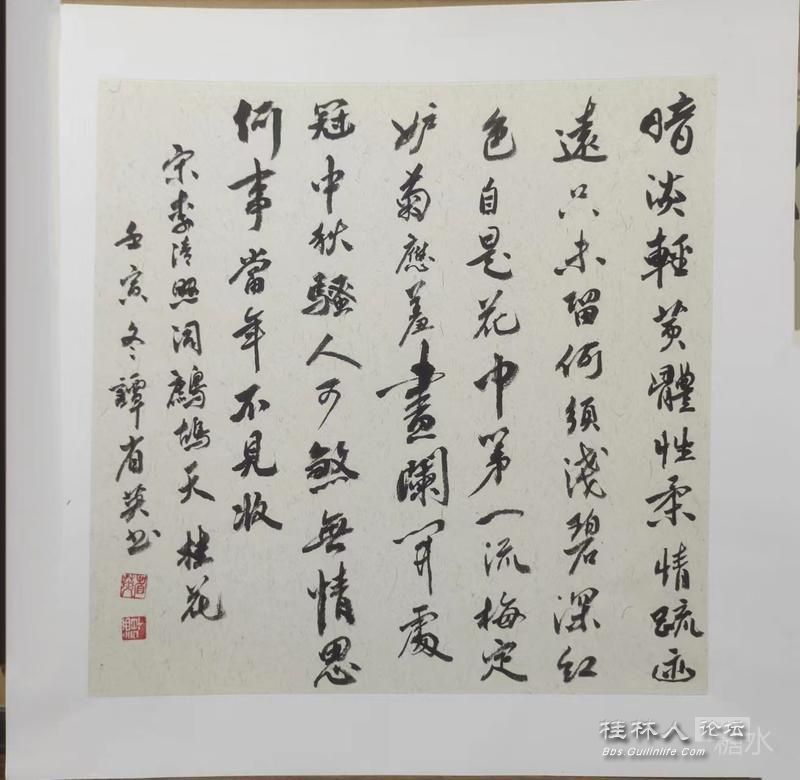 暗淡輕黄體性柔情疏迹
遠只香留何須淺碧深紅
色自是花中第一流梅定
妒菊應羞畫欄開處
冠中秋騷人可煞無情思
何事當年不見收
宋李清照詞鷓鴣天桂花
壬寅冬譚有英书
桂林人论坛
糖水
Bbs.Guilinlife.Com